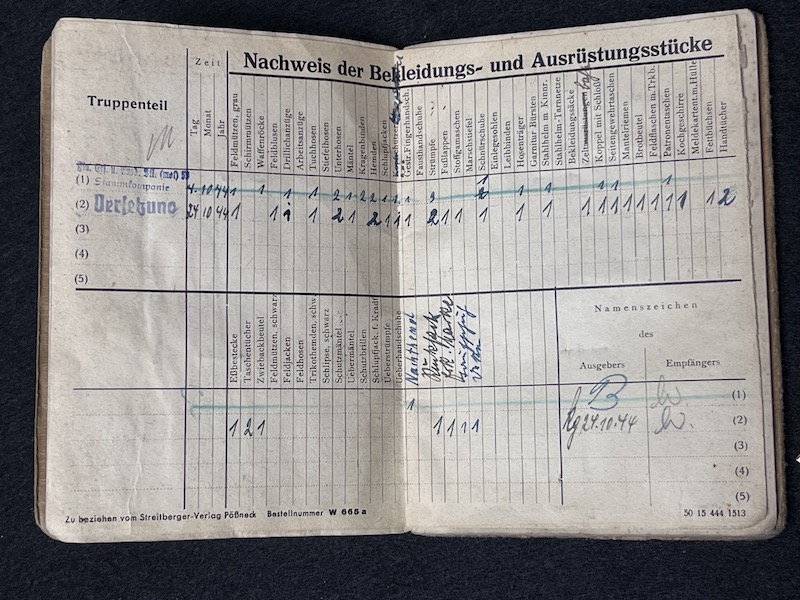 Nachweis der Bekleidungs- und Ausrüstungsstücke
Truppenteil
Zeit
Tag
Monat
Jahr
Feldmützen, grau
Schirmmützen
Waffenröcke
Feldblusen
Drillichanzüge
Arbeitsanzüge
Tuchhosen
Stiefelhosen
Unterhosen
Mäntel
Kragenbinden
Hemden
Schlupfjacken
Gestr. Fingerhandsch.
Fausthandschuhe
Strümpfe
Fußlappen
Stoffgamaschen
Marschstiefel
Schnürschuhe
Einlegesohlen
Leibbinden
Hosenträger
Garnitur Bürsten
Stahlhelm m. Kinnr.
Stahlhelm-Tarnnetze
Bekleidungssäcke
Koppel mit Schloß
Seitengewehrtaschen
Mantelriemen
Brotbeutel
Feldflaschen m. Trkb.
Patronentaschen
Kochgeschirre
Meldekartent. m. Hülle
Fettbüchsen
Handtücher
(1) Stammkompanie 4. 10 44 1 1 1 1 1 2 1 2 2 1 1 1 3 1 1 1 1 1 1
(2) Versetzung 24 10 44 1 1 1 1 2 1 2 1 1 1 2 1 1 1 1 1 1 1 1 1 1 1 1 1 1 1 2
(3)
(4)
(5)
Eßbestecke
Taschentücher
Zwiebackbeutel
Feldmützen, schwarz
Feldjacken
Feldhosen
Trikothemden, schw.
Schlipse, schwarz
Schutzmäntel
Uebermäntel
Schutzbrillen
Schlupfjack. f. Kradf.
Ueberstrümpfe
Ueberhandschuhe
Nachthemd
Rucksack
Namenszeichen
des
Ausgebers
Empfängers
1 B (1)
1 2 1 1 1 1 1 24.10.44 (2)
(3)
(4)
(5)
Zu beziehen vom Streitberger-Verlag Pößneck Bestellnummer W 665 a
50 15 444 1513